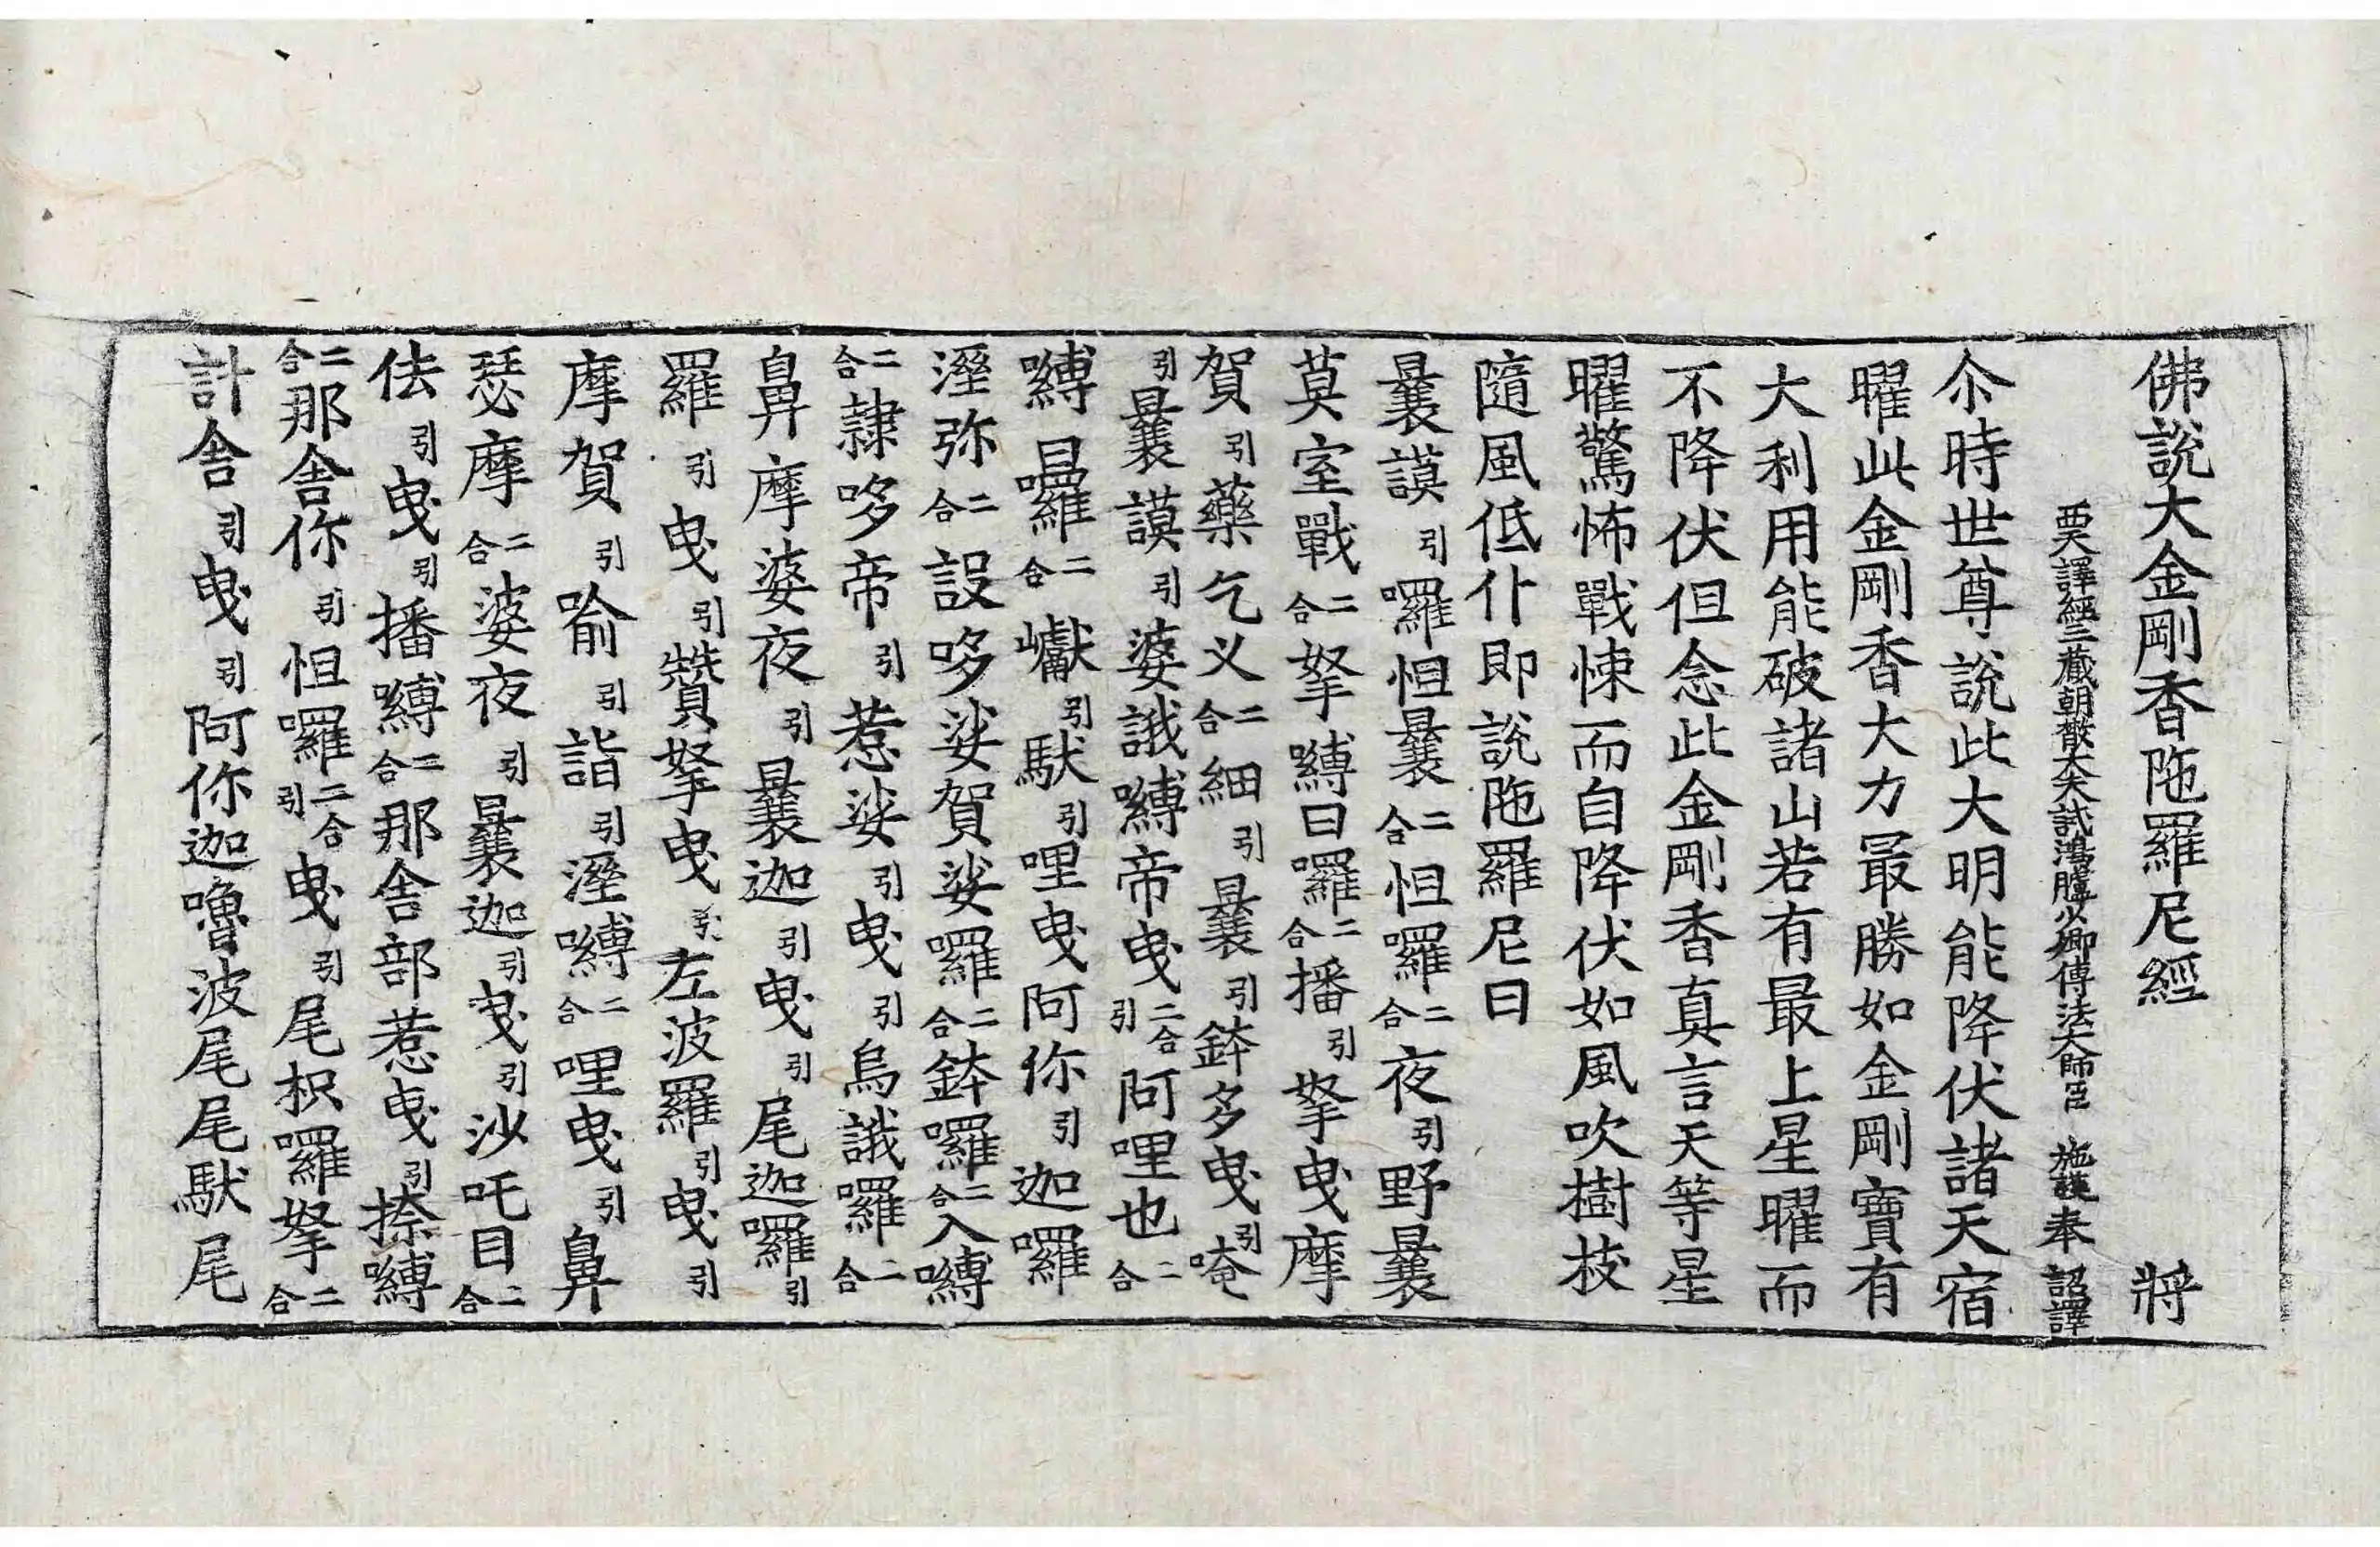 佛說大金剛香陁羅尼經 將
西天譯經三藏朝散大夫試鴻臚少卿傳法大師臣 施護奉 詔譯
尒時世尊說此大明能降伏諸天宿
曜此金剛香大力最勝如金剛寶有
大利用能破諸山若有最上星曜而
不降伏但念此金剛香真言天等星
曜驚怖戰悚而自降伏如風吹樹枝
隨風低仆即說陁羅尼曰
曩謨引囉怛曩二合怛囉二合夜引野曩
莫室戰二合拏嚩日囉二合播引拏曳摩
賀引藥乞义二合細引曩引鉢多曳引唵
引曩謨引婆誐嚩帝曳二合引阿哩也二合
嚩囉二合𪩘引馱引哩曳阿你引迦囉
溼弥二合設哆娑賀娑囉二合鉢囉二合入嚩
二合隸哆帝引惹娑引曳引烏誐囉二合
鼻摩婆夜引曩迦引曳引尾迦囉引
羅引曳引贊拏曳引左波羅引曳引
摩賀引喻引詣引溼嚩二合哩曳引鼻
瑟摩二合婆夜引曩迦引曳引沙吒目二合
佉引曳引播嚩二合那舍部惹曳引捺嚩
二合那舍你引怛囉二合引曳引尾枳囉拏二合
計舍引曳引阿你迦嚕波尾尾馱尾